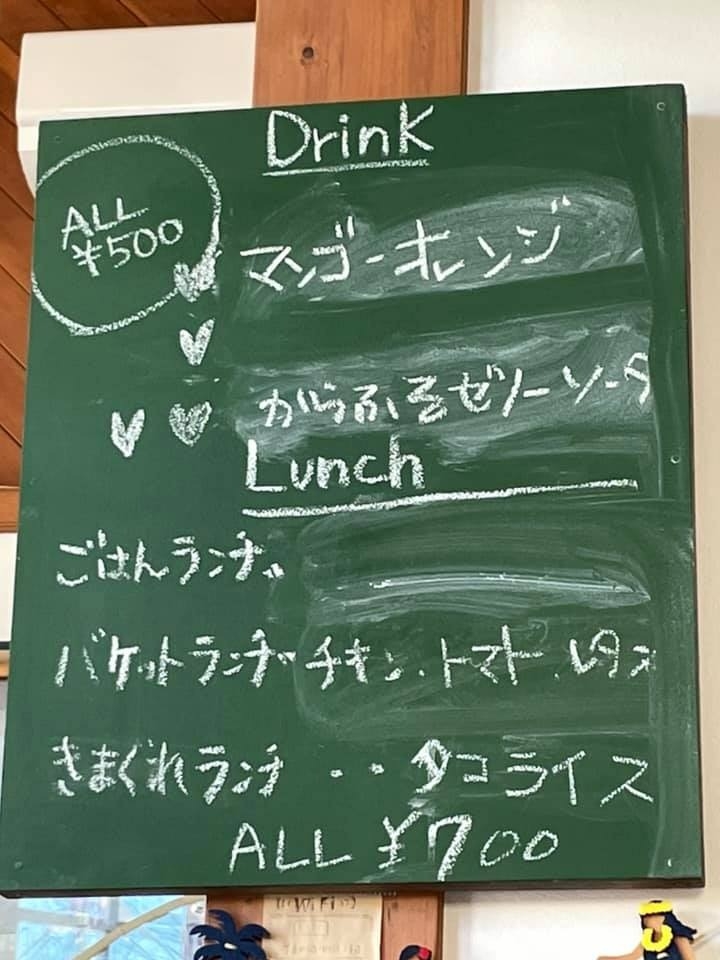 Drink
ALL
¥500
マンゴーオレンジ
からふるゼリーソーダ
Lunch
ごはんランチ..
バケットランチ..チキン.トマト.レタス
きまぐれランチ ・・タコライス
ALL ¥700